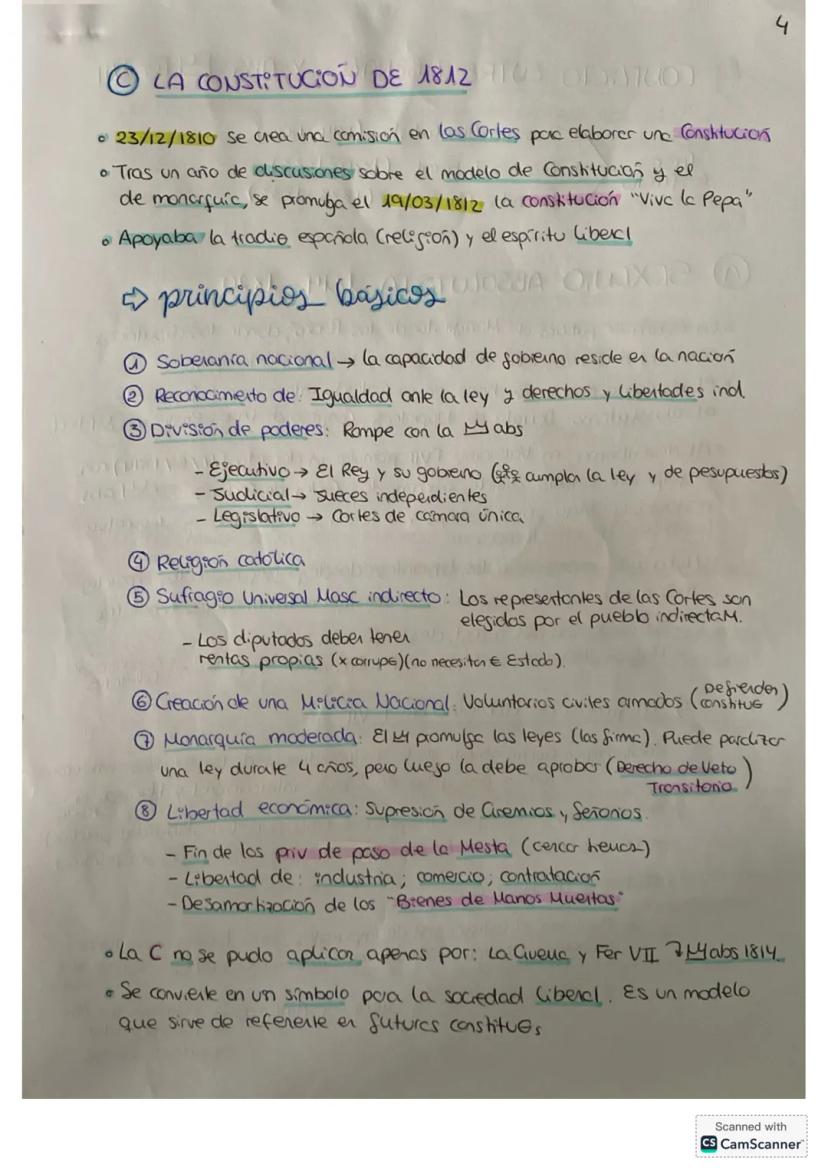 4
Ⓒ LA CONSTITUCIÓN DE 1812
• 23/12/1810 se crea una comisión en las Cortes para elaborar una Constitución
• Tras un año de discusiones sobre el modelo de Constitución y el
de monarquía, se promulga el 19/03/1812 la constitución "Viva la Pepa"
• Apoyaba la tradio española (religión) y el espíritu liberal
⇨ principios básicos
① Soberanía nacional → la capacidad de gobierno reside en la nación
② Reconocimiento de: Igualdad ante la ley y derechos y libertades ind.
③ División de poderes: Rompe con la abs
- Ejecutivo → El Rey y su gobierno ( cumplan la ley y de pesupuestos)
- Judicial → Jueces independientes
- Legislativo → Cortes de cámara única
④ Religión católica
⑤ Sufragio Universal Masc indirecto: Los representantes de las Cortes son
elegidos por el pueblo indirectaM.
- Los diputados deben tener
rentas propias (x corrupc) (no necesitan € Estado).
⑥ Creación de una Milicia Nacional: Voluntarios civiles armados (Defienden constitu)
⑦ Monarquía moderada: El promulga las leyes (las firma). Puede paralizar
una ley durate 4 años, pero luego la debe aprobar (Derecho de Veto
Transitorio)
⑧ Libertad económica: Supresión de Gremios y Señoríos.
- Fin de los priv de paso de la Mesta (cercar)
- Libertad de: industria; comercio; contratación
- Desamortización de los "Bienes de Manos Muertas"
• La C no se pudo aplicar apenas por: La Guerra y Fer VII abs 1814.
• Se convierte en un símbolo para la sociedad liberal. Es un modelo
que sirve de referente en futuras
Scanned with
CS CamScanner